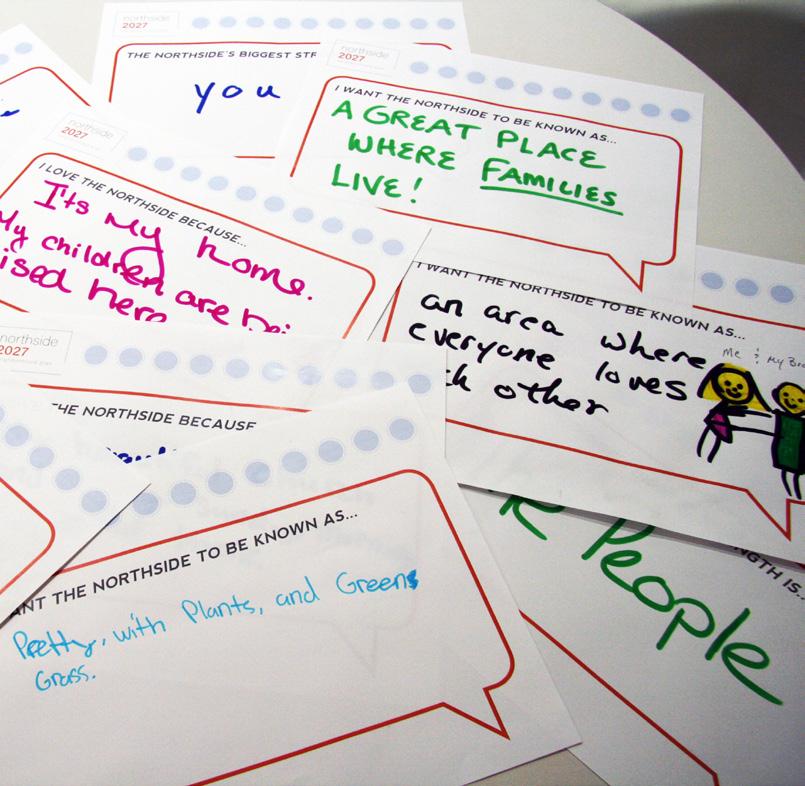 northside
2027
THE NORTHSIDE'S BIGGEST STR
you
northside
2027
I WANT THE NORTHSIDE TO BE KNOWN AS...
A GREAT PLACE
WHERE FAMILIES
LIVE!
northside
2027
I LOVE THE NORTHSIDE BECAUSE...
It's My home.
My children are bei
ised here
I WANT THE NORTHSIDE TO BE KNOWN AS...
an area where
everyone loves
ch other
Me & My Bro
northside
2027
THE NORTHSIDE BECAUSE
ANT THE NORTHSIDE TO BE KNOWN AS...
Pretty, with Plants, and Greens
Grass.
NGTH IS...
People